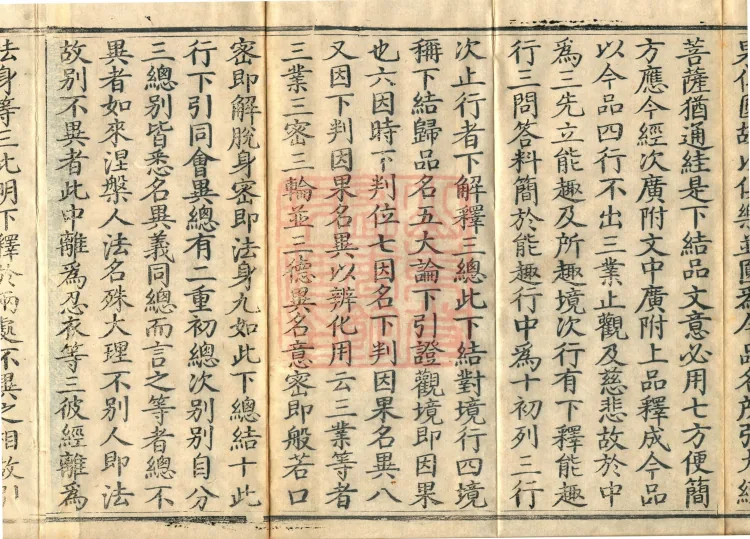 菩薩猶通絓是下結品文意必用七方便簡
方應今經次廣附文中廣附上品釋成今品
以今品四行不出三業止觀及慈悲故於中
為三先立能趣及所趣境次行有下釋能趣
行三問答料簡於能趣行中為十初列三行
次止行者下解釋三總此下結對境行四境
稱下結歸品名五大論下引證觀境即因果
也六因時下判位七因名下判因果名異八
又因下判因果名異以辨化用云三業等者
三業三密三輪並三德異名意密即般若口
密即解脫身密即法身九如此下總結十此
行下引同會異總有二重初總次別別自分
三總別皆悉名異義同總而言之等者總不
異者如來涅槃人法名殊大理不別人即法
故別不異者此中離為忍衣等三彼經離為
法身等三此明下釋於兩處不異之相故